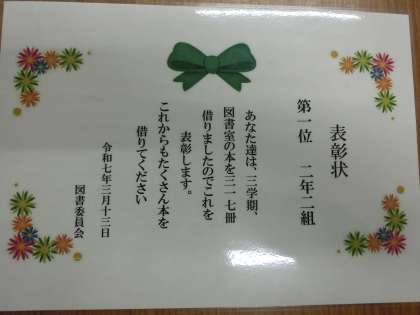 表彰状
第一位　二年二組
あなた達は、三学期、
図書室の本を三一七冊
借りましたのでこれを
表彰します。
これからもたくさん本を
借りてください
令和七年三月十三日
図書委員会